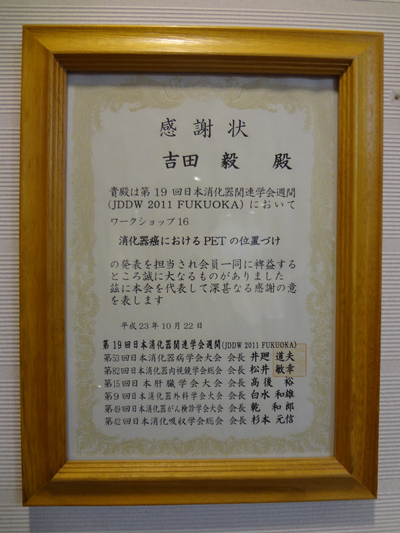 感謝状
吉田 毅 殿
貴殿は第19回日本消化器関連学会週間
(JDDW 2011 FUKUOKA) において
ワークショップ16
消化器癌におけるPETの位置づけ
の発表を担当され会員一同に裨益する
ところ誠に大なるものがありました
茲に本会を代表して深甚なる感謝の意
を表します
平成23年10月22日
第19回日本消化器関連学会週間(JDDW 2011 FUKUOKA)
第53回日本消化器病学会大会 会長 井廻 道夫
第82回日本消化器内視鏡学会総会 会長 松井 敏幸
第15回日本肝臓学会大会 会長 髙後 裕
第9回日本消化器外科学会大会 会長 白水 和雄
第49回日本消化器がん検診学会大会 会長 乾 和郎
第42回日本消化吸収学会総会 会長 杉本 元信